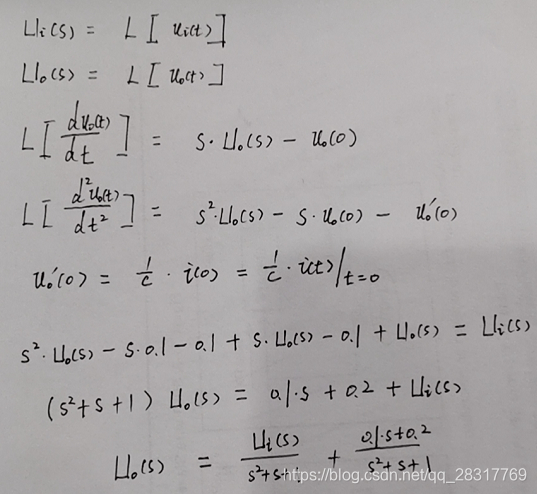 Ui(s) = L[ui(t)]
Uo(s) = L[uo(t)]
L[duo(t)/dt] = s·Uo(s) - uo(0)
L[d²uo(t)/dt²] = s²·Uo(s) - s·uo(0) - uo'(0)
uo'(0) = 1/C · i(0) = 1/C · i(t)/t=0
s²·Uo(s) - s·0.1 - 0.1 + s·Uo(s) - 0.1 + Uo(s) = Ui(s)
(s²+s+1) Uo(s) = 0.1·s + 0.2 + Ui(s)
Uo(s) = Ui(s)/(s²+s+1) + (0.1·s+0.2)/(s²+s+1)
https://blog.csdn.net/qq_28317769